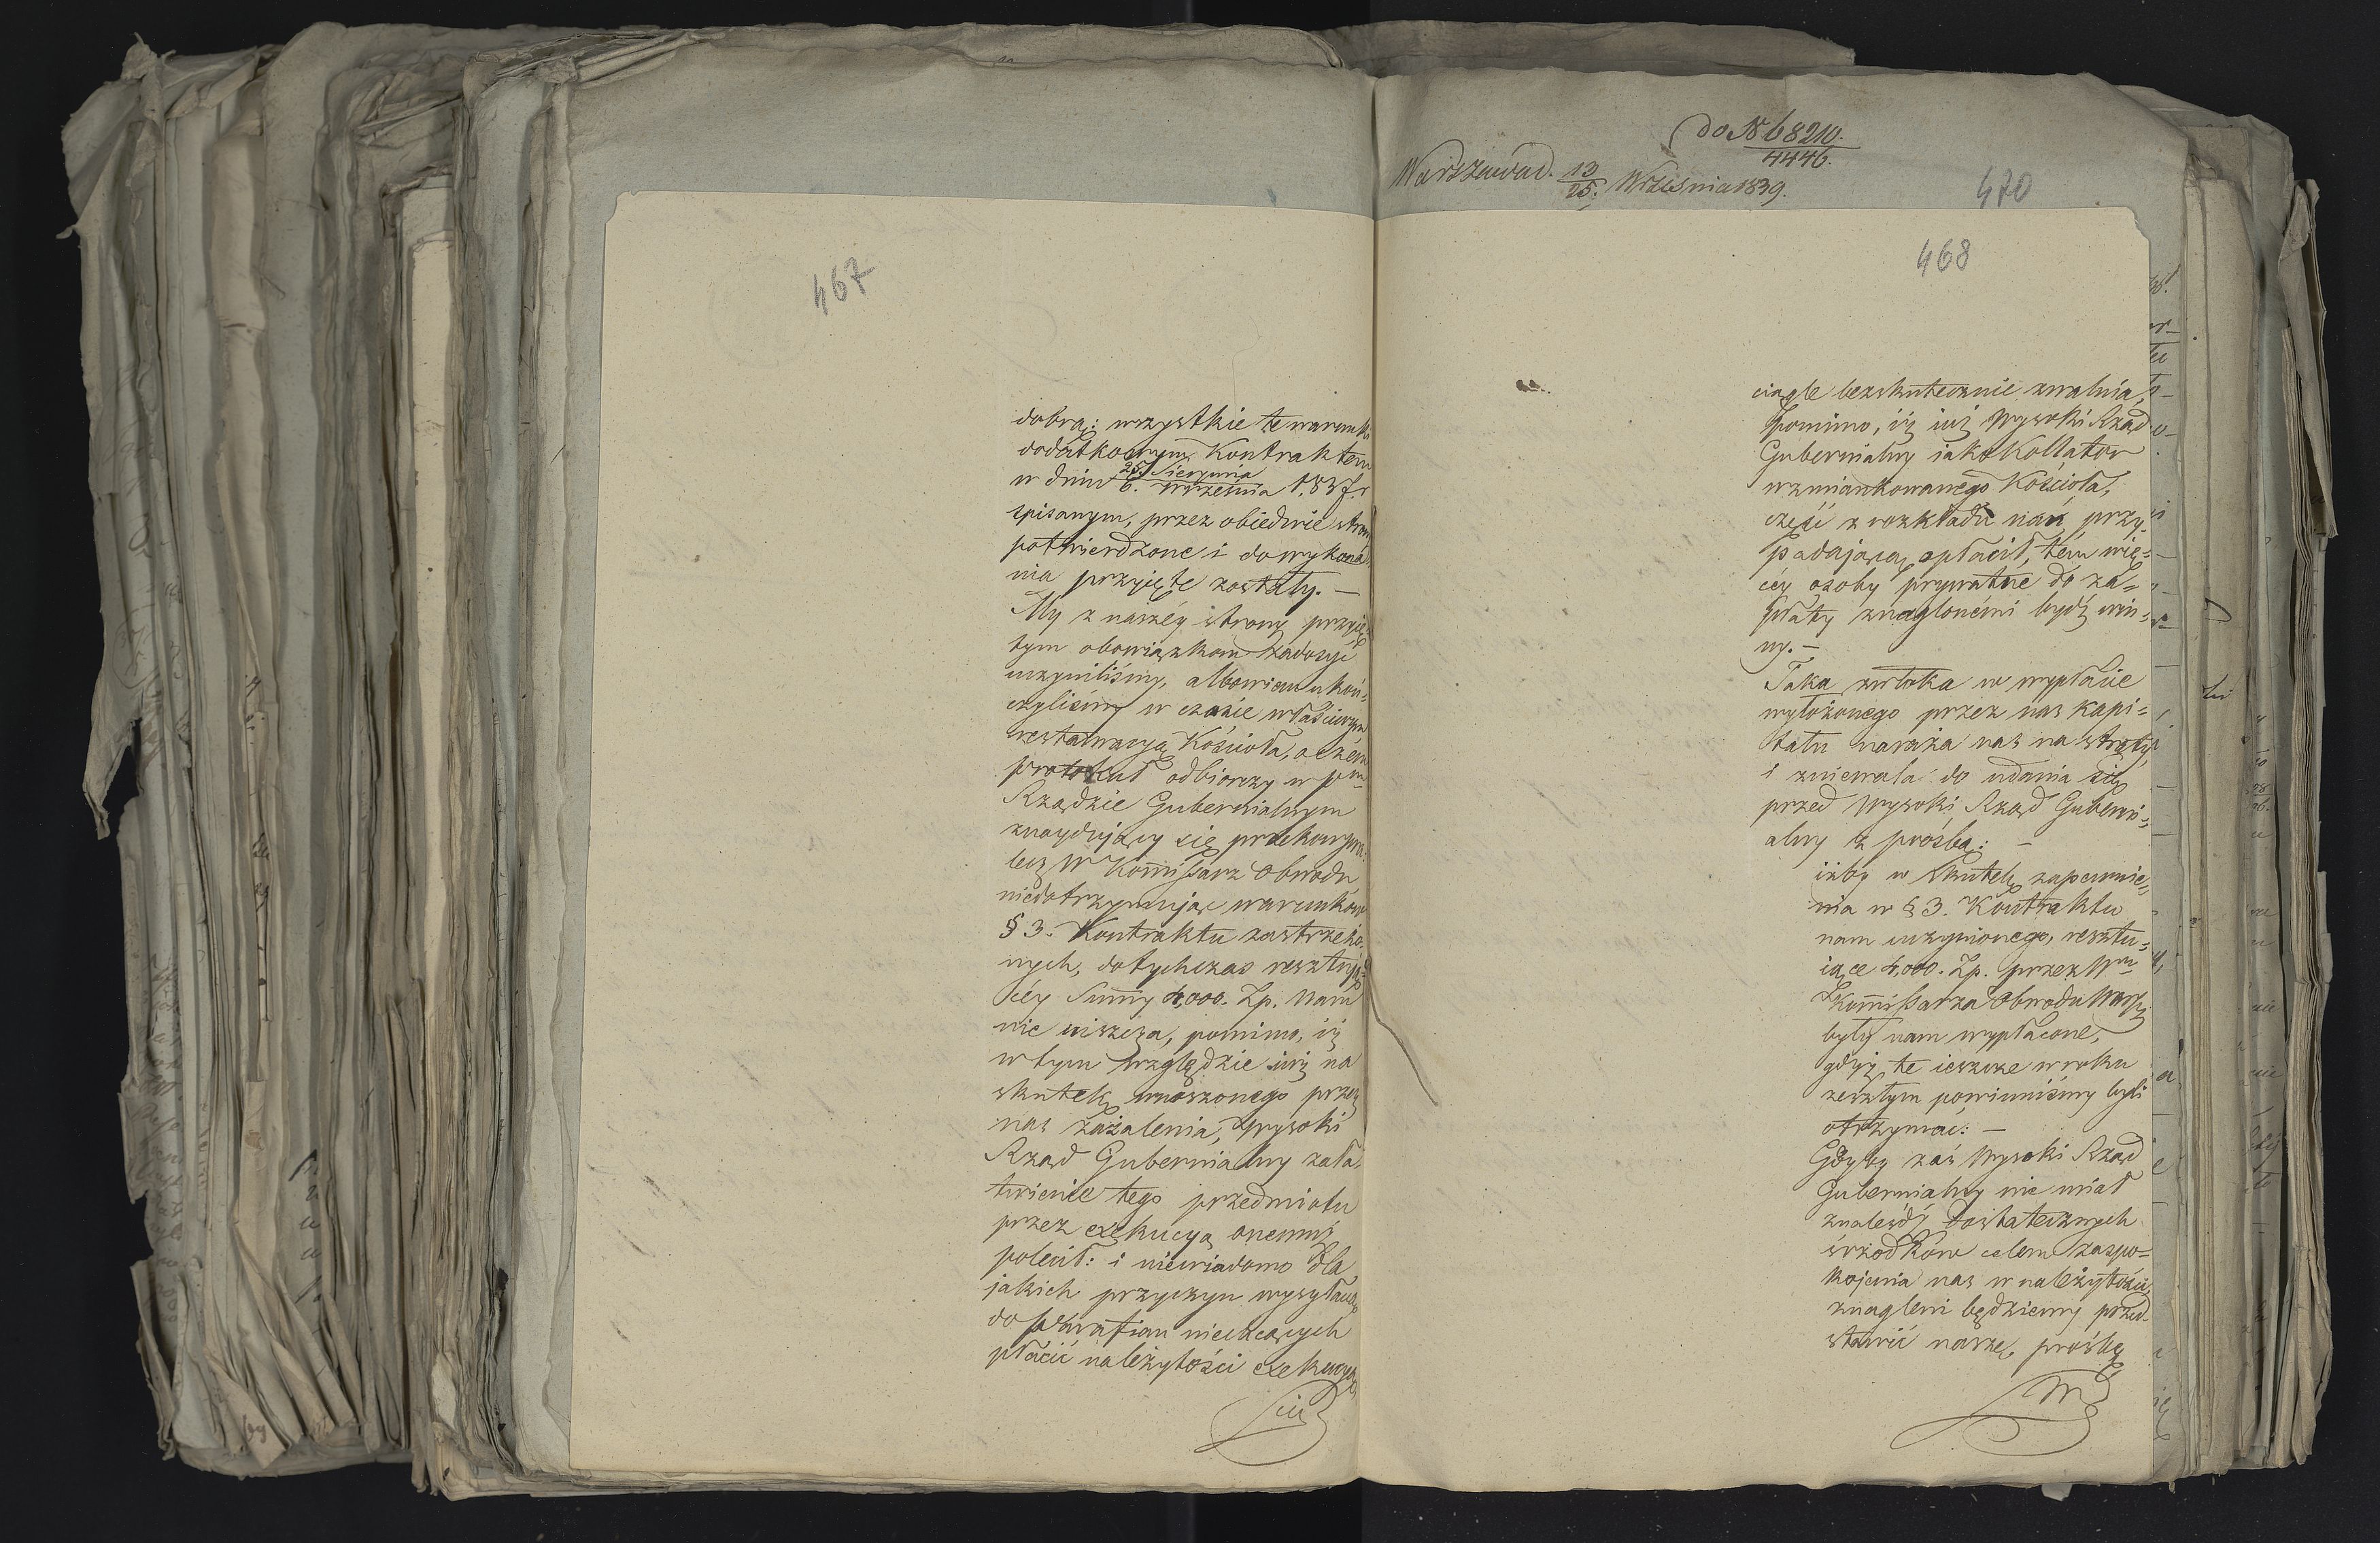 467
dobrą: wszystkie te warunki
dodatkowym Kontraktem
w dniu 25 Sierpnia / 6. Września 1837. r
spisanym, przez obiedwie stron
potwierdzone i do wykona
nia przyięte zostały. —
My z naszéy strony przyię
tym obowiązkom zadosyć
uczyniliśmy, albowiem ukoń=
czyliśmy w czasie właściwym
restauracyą Kościoła, o czém
protokuł odbiorczy w
Rządzie Gubernialnym
znaydujący się przekonywa:
lecz W Kommissarz Obwodu
niedotrzymując warunków
§ 3. Kontraktu zastrzeżo
nych, dotychczas resztują=
céy Summy 4,000. Zp. nam
nie uiszcza, pomimo, iż
w tym względzie iuż na
skutek wnoszonego przez
nas zażalenia, Wysoki
Rząd Gubernialny zała
twienie tego przedmiotu
przez exekucyą onemuż
polecił: i niewiadomo dla
jakich przyczyn wysyłaną
do parafian niechcących
płacić należytości exekucyą
do N 68210. / 4446.
Warszawa d. 13/25. Września 1839.
470
468
ciągle bezskutecznie zwalnia,
pomimo, iż iuż Wysoki Rząd
Gubernialny iako Kollator
wzmiankowanego Kościoła,
część z rozkładu nań przy=
padającą opłacił, tém wię=
céy osoby prywatne do za=
płaty znaglonémi bydź win=
ny. —
Taka zwłoka w wypłacie
wyłożonego przez nas kapi=
tału naraża nas na straty
i zniewala do udania się
przed Wysoki Rząd Guberni=
alny z prośbą: —
iżby w skutek zapewnie=
nia w § 3. Kontraktu
nam uczynionego, resztu=
iące 4,000. Zp. przez
Kommissarza Obwodu
były nam wypłacone,
gdyż te ieszcze w roku
zeszłym powinniśmy byli
otrzymać: —
Gdyby zaś Wysoki Rząd
Gubernialny nie miał
znaleźdź dostatecznych
śrzodków celem zaspo=
kojenia nas w należytości,
znagleni będziemy przed=
stawić naszę prośbę